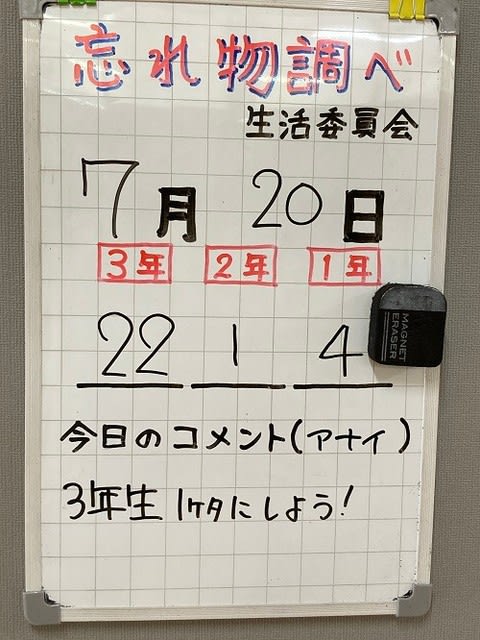 忘れ物調べ
生活委員会
7月 20日
3年 2年 1年
22 1 4
MAGNET ERASER
今日のコメント(アナイ)
3年生 1ケタにしよう!